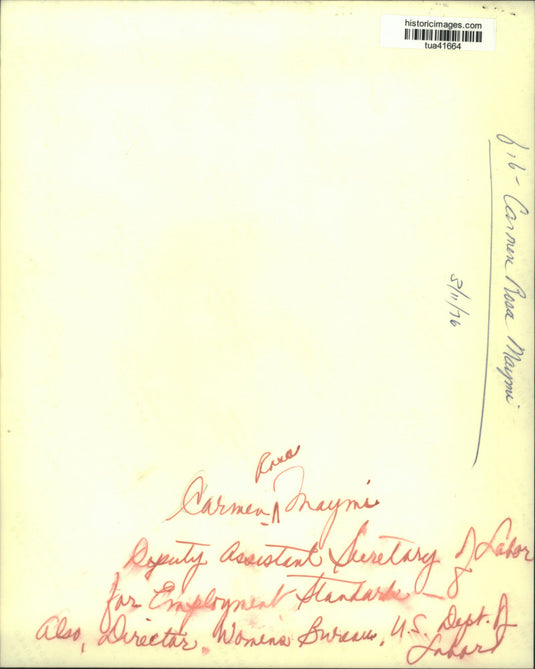 historicimages.com
tua41664
fib - Carmen Rosa Maymi
5/11/76
Rosa
Carmen ^ Maymi
Deputy Assistant Secretary of Labor
for Employment Standards -
Also, Director, Women's Bureau, U.S. Dept. of
Labor